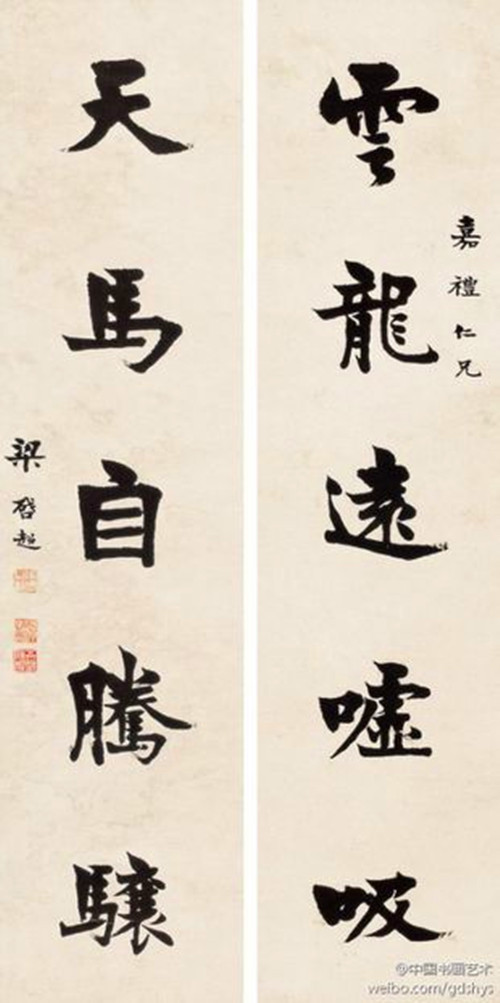 嘉禮仁兄
雲龍遠噓吸
天馬自騰驤
梁啓超
@中国书画艺术
weibo.com/gdshys